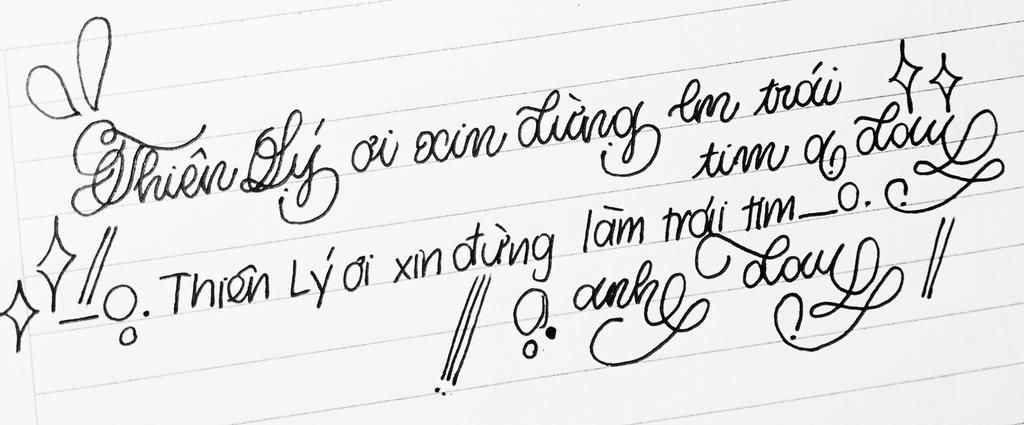 Thiên Lý ơi xin đừng lm trái
tim a đau
Thiên Lý ơi xin đừng làm trái tim
anh đau